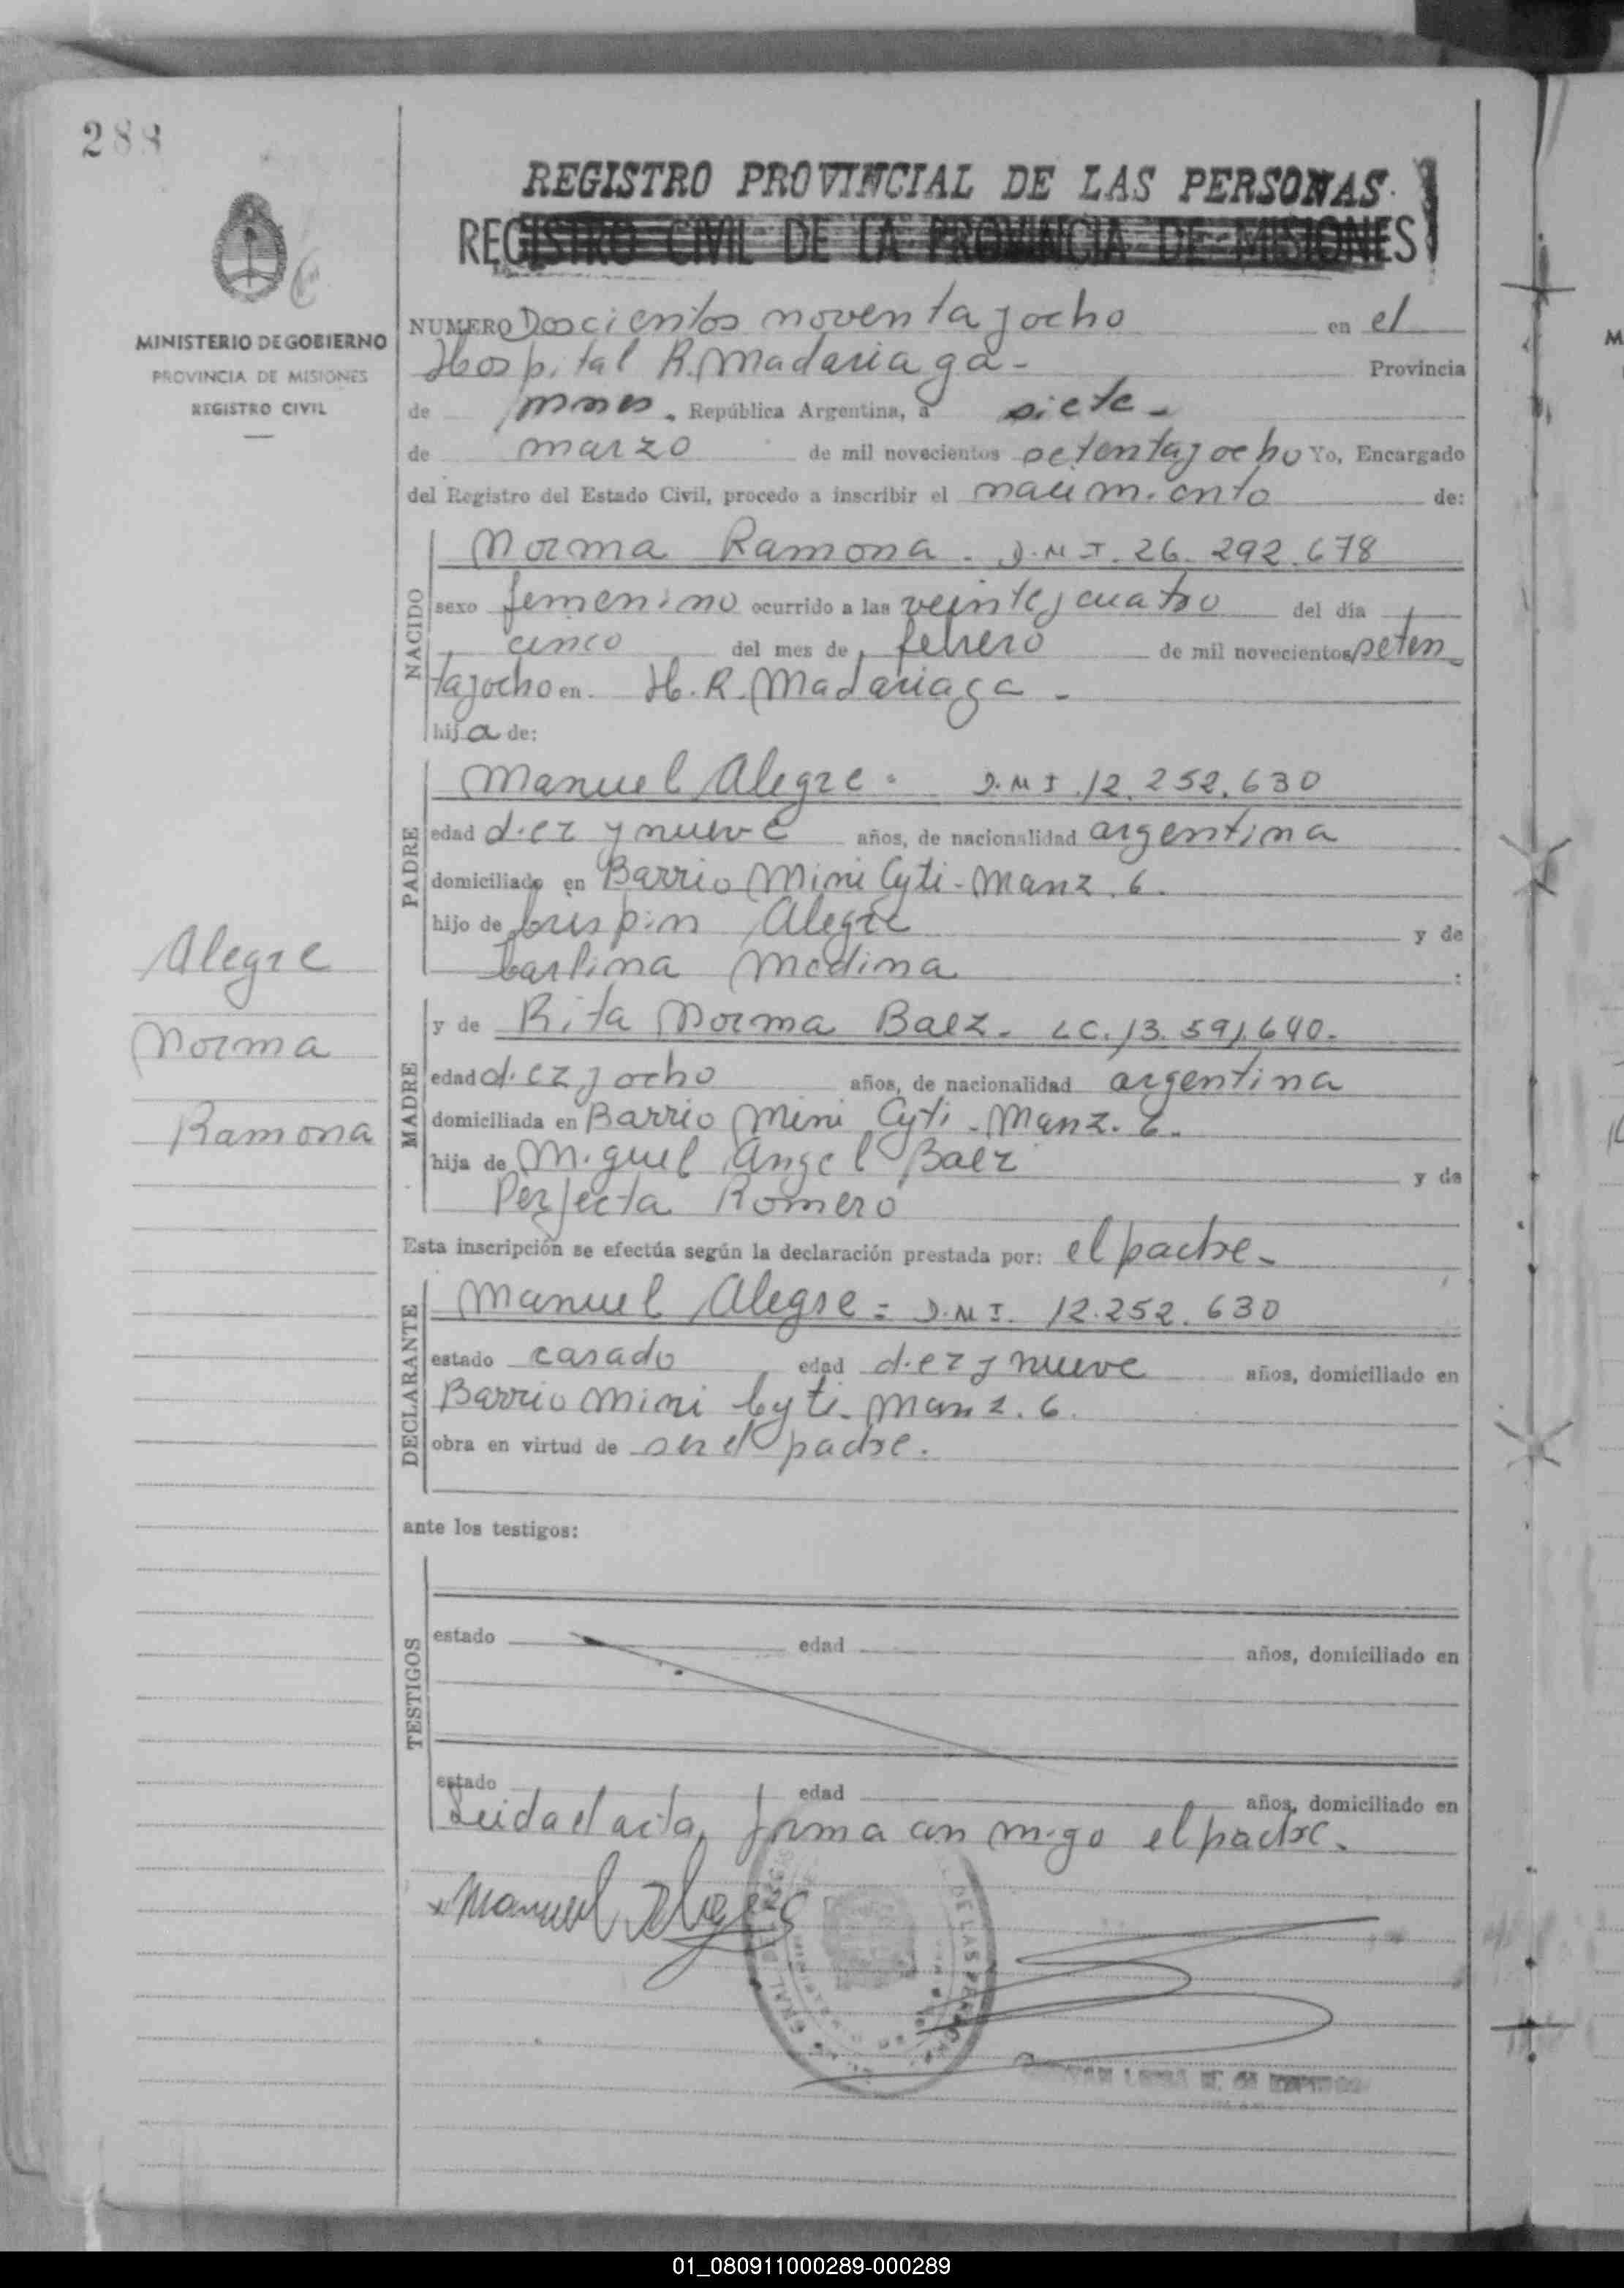 288
REGISTRO PROVINCIAL DE LAS PERSONAS
REGISTRO CIVIL DE LA PROVINCIA DE MISIONES
MINISTERIO DE GOBIERNO
PROVINCIA DE MISIONES
REGISTRO CIVIL
NUMERO Doscientos noventa y ocho en el
Hospital R. Madariaga - Provincia
de mnes. República Argentina, a siete -
de marzo de mil novecientos setenta y ocho Yo, Encargado
del Registro del Estado Civil, procedo a inscribir el nacimiento de:
NACIDO
Norma Ramona - D.N.I. 26.292.678
sexo femenino ocurrido a las veinte y cuatro del día
cinco del mes de febrero de mil novecientos seten
ta y ocho en H. R. Madariaga -
hija de:
PADRE
Manuel Alegre - D.N.I. 12.252.630
edad diez y nueve años, de nacionalidad argentina
domiciliado en Barrio Mini Cyti - Manz. 6.
hijo de Crispin Alegre y de
Carlina Medina :
Alegre
Norma
Ramona
MADRE
y de Rita Norma Baez - LC. 13.591.640.
edad diez y ocho años, de nacionalidad argentina
domiciliada en Barrio Mini Cyti - Manz. 6.
hija de Miguel Angel Baez y de
Perfecta Romero
Esta inscripción se efectúa según la declaración prestada por: el padre -
DECLARANTE
Manuel Alegre = D.N.I. 12.252.630
estado casado edad diez y nueve años, domiciliado en
Barrio Mini Cyti - Manz. 6.
obra en virtud de ser el padre.
ante los testigos:
TESTIGOS
estado edad años, domiciliado en
estado edad años, domiciliado en
Leida el acta, firma con migo el padre.
Manuel Alegre
DE LAS PERSONAS
01_080911000289-000289